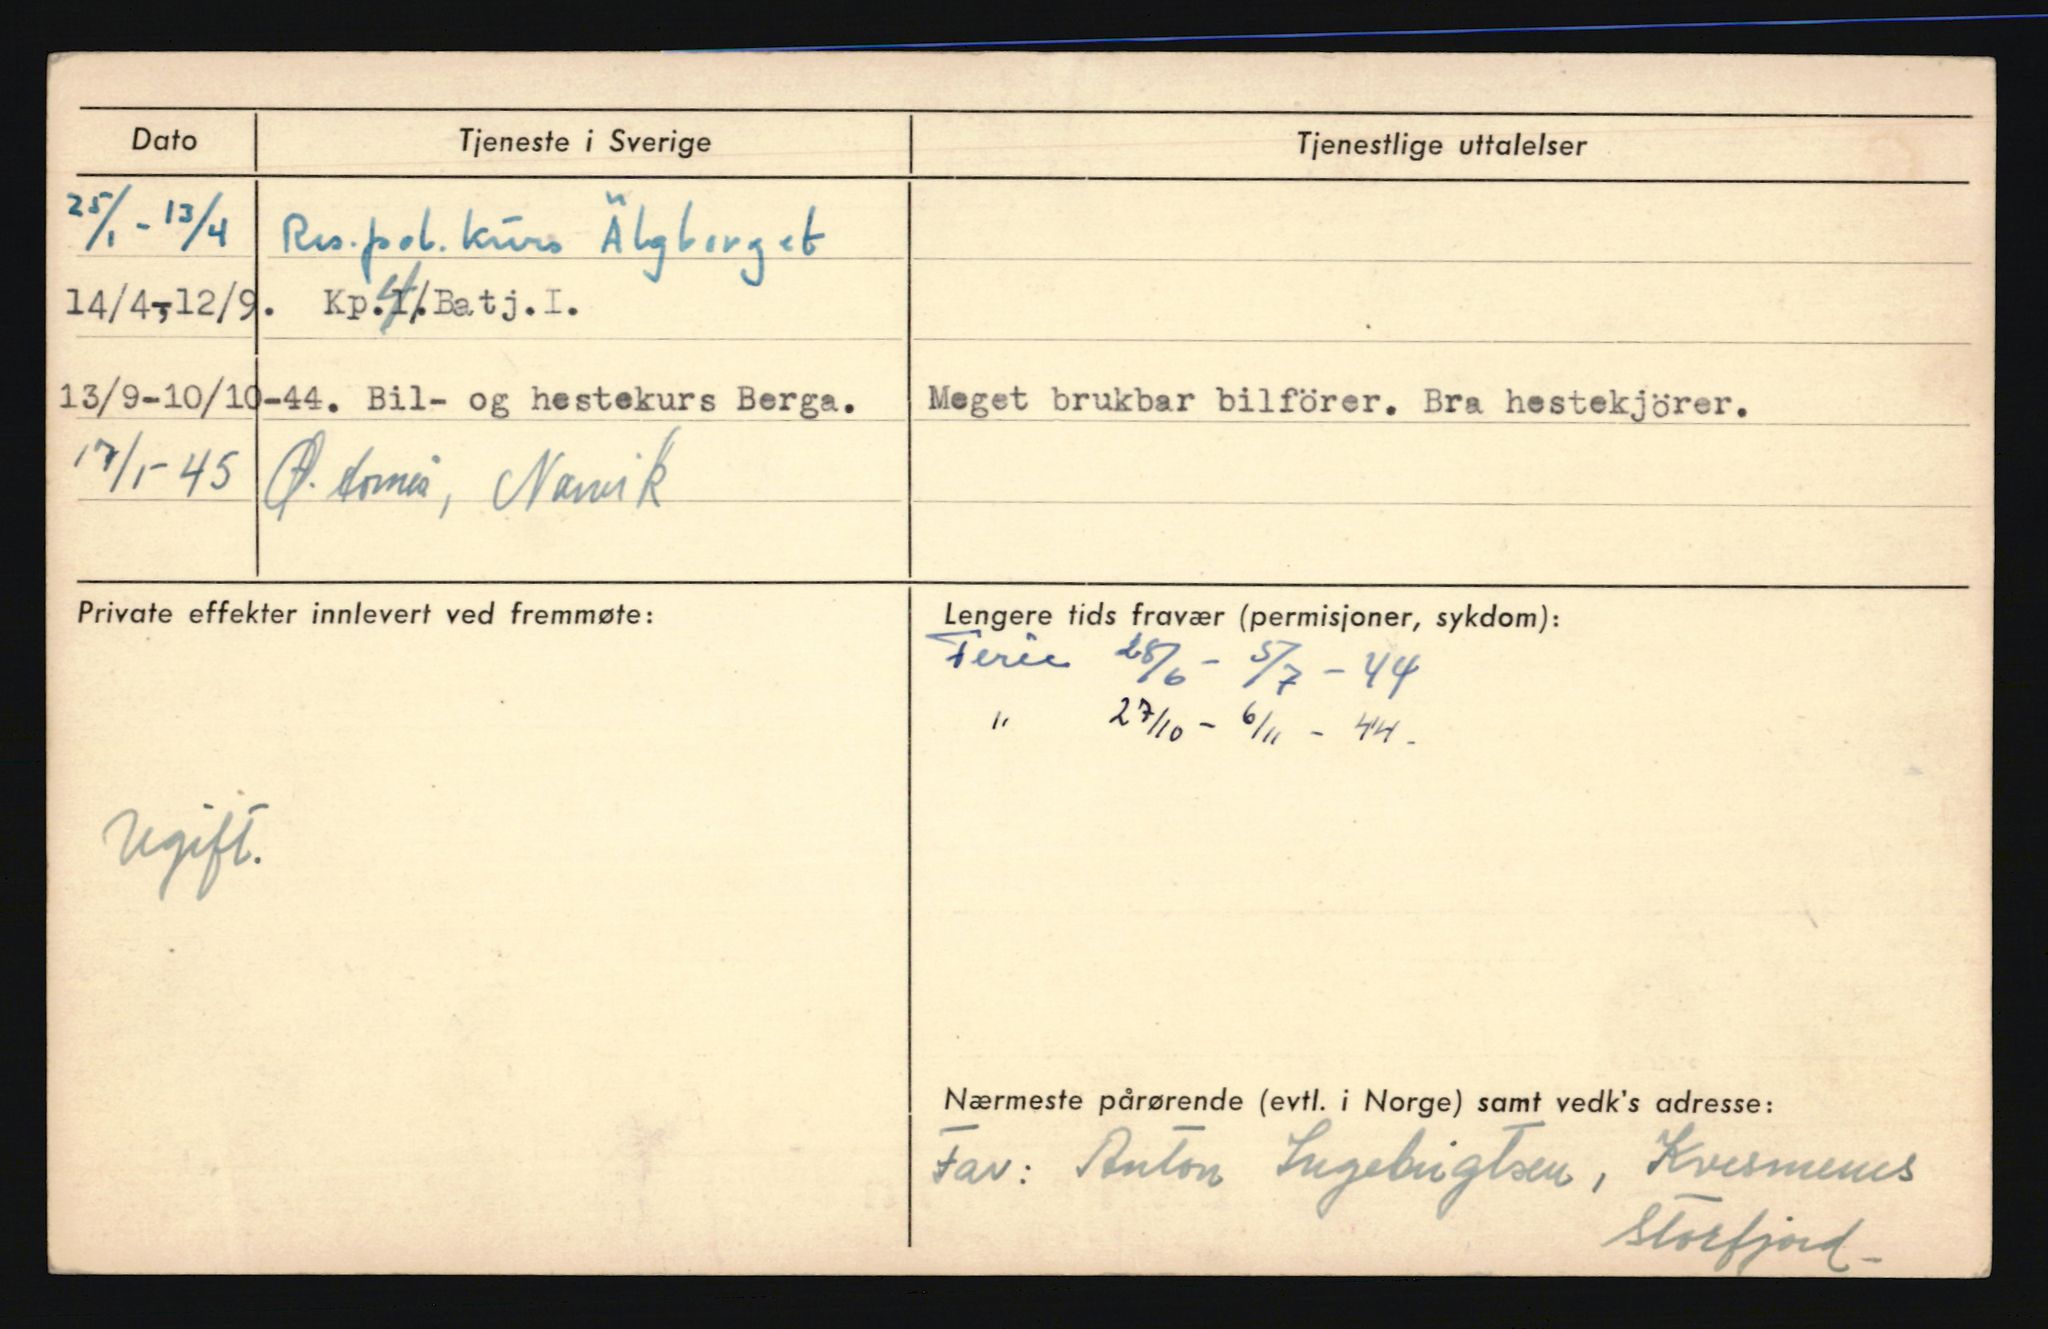 Dato Tjeneste i Sverige Tjenestlige uttalelser
25/1 - 13/4 Res.pol. kurs Älgberget
14/4-12/9. Kp.4/.Batj.I.
13/9-10/10-44. Bil- og hestekurs Berga. Meget brukbar bilförer. Bra hestekjörer.
17/1-45 Ø. , Narvik
Private effekter innlevert ved fremmøte:
Ugift.
Lengere tids fravær (permisjoner, sykdom):
Ferie 28/6 - 5/7 - 44
" 27/10 - 6/11 - 44.
Nærmeste pårørende (evtl. i Norge) samt vedk's adresse:
Far: Anton Ingebrigtsen, Kvesmenes
Storfjord